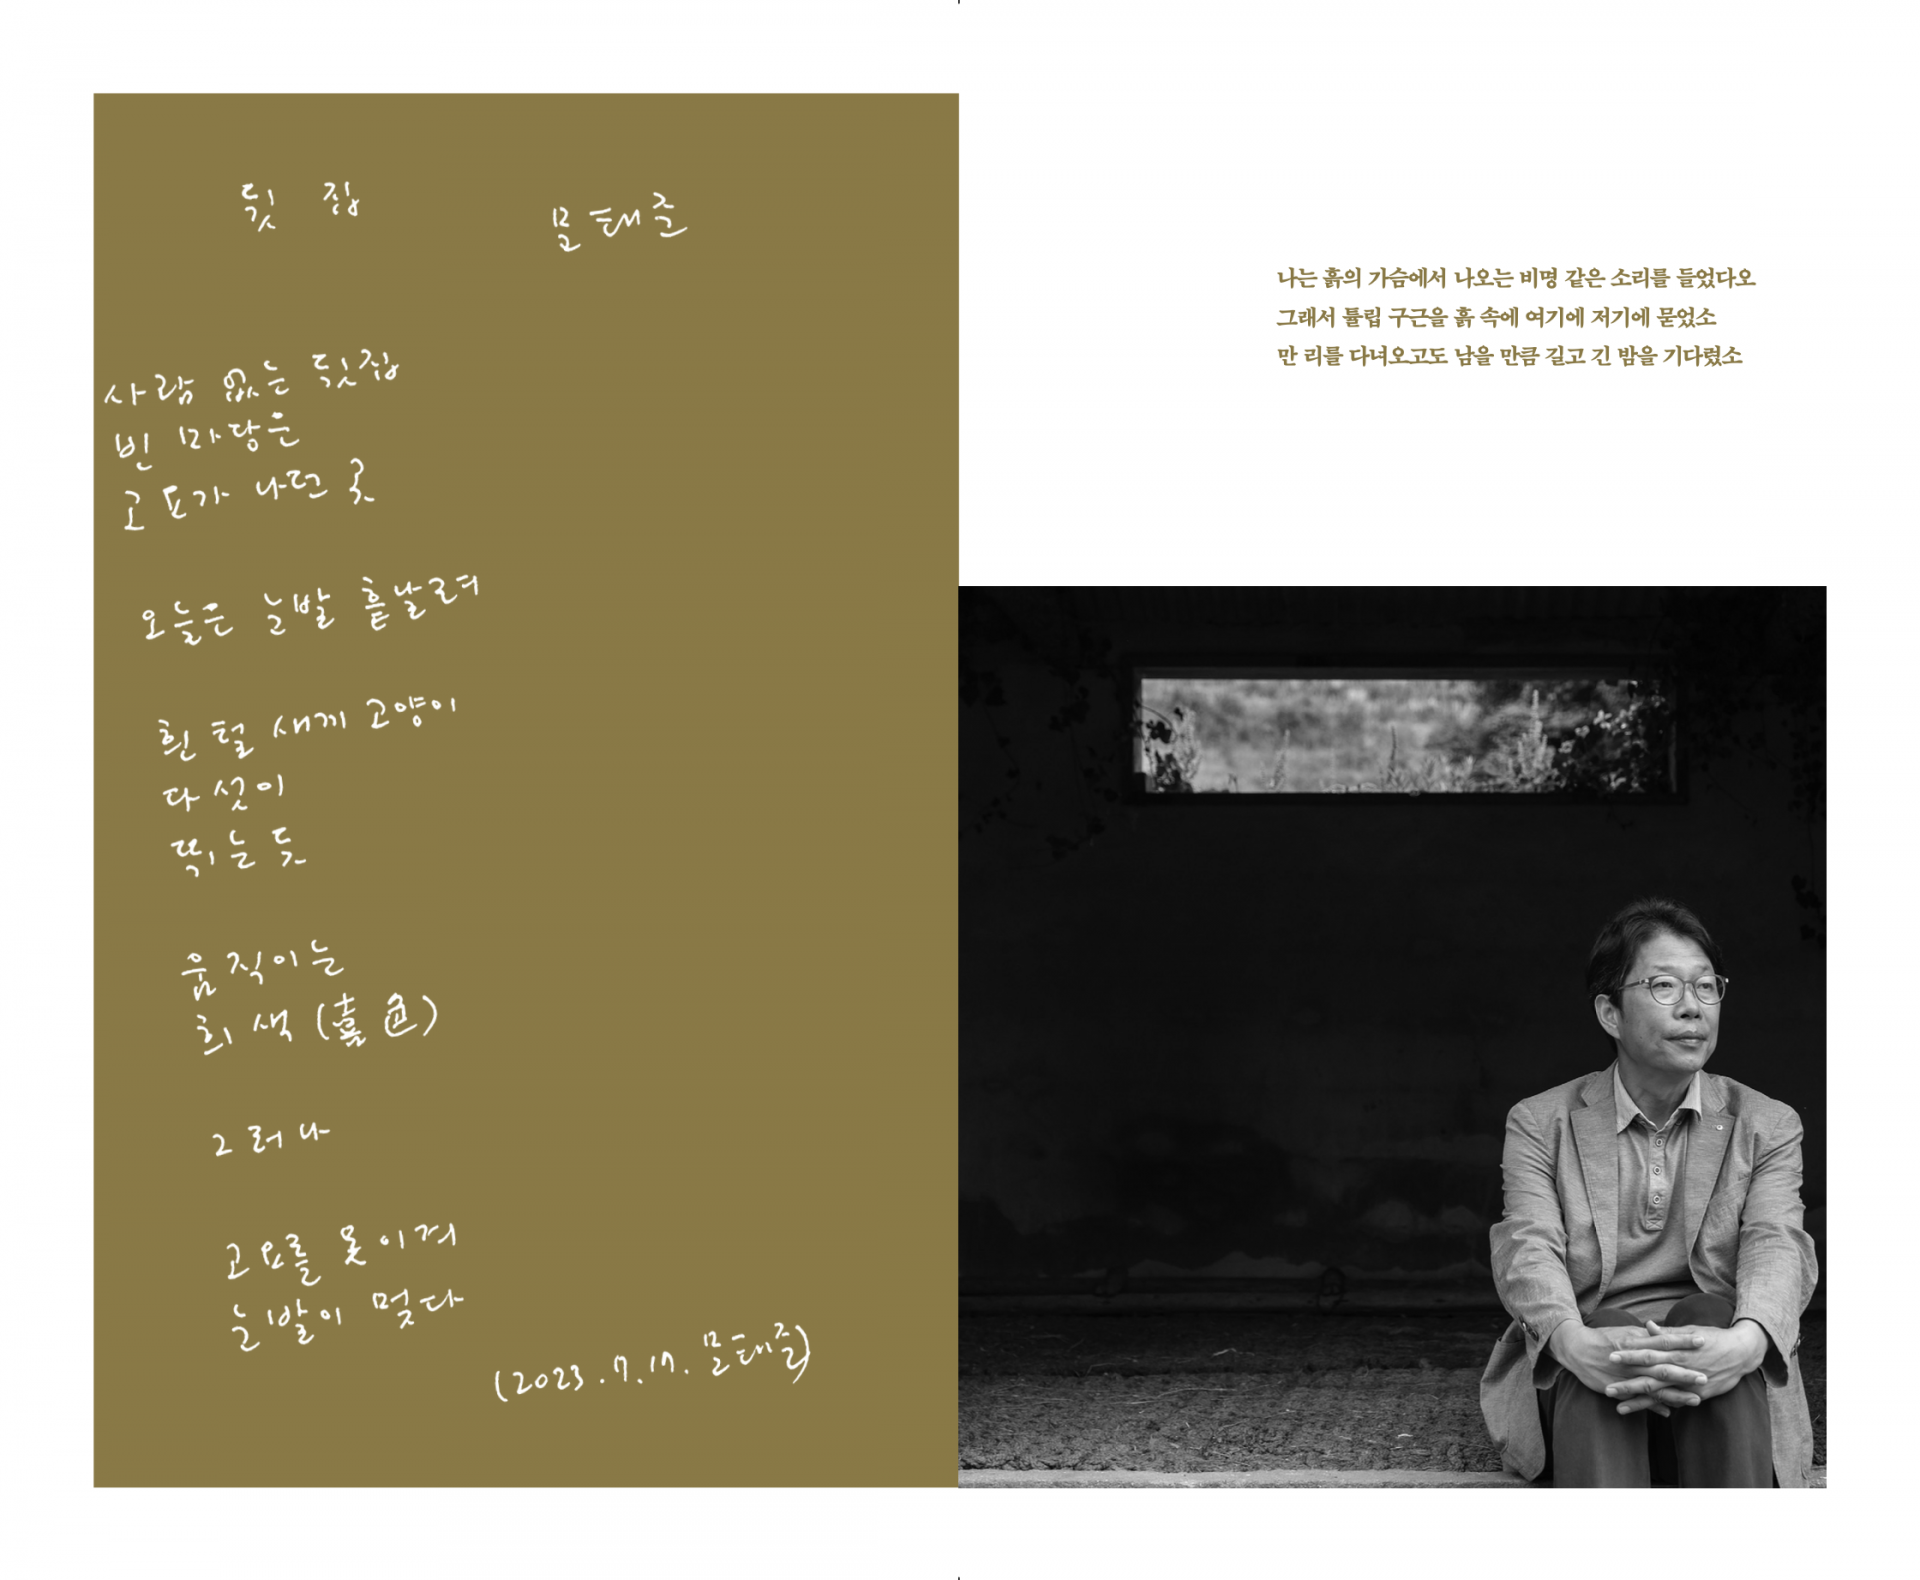 뒷집
문태준
사람 없는 뒷집
빈 마당은
고요가 나던 곳
오늘은 눈발 흩날려
흰 털 새끼 고양이
다섯이
뛰는 듯
움직이는
희색(喜色)
그러나
고요를 못 이겨
눈발이 멎다
(2023.7.17. 문태준)
나는 흙의 가슴에서 나오는 비명 같은 소리를 들었다오
그래서 튤립 구근을 흙 속에 여기에 저기에 묻었소
만 리를 다녀오고도 남을 만큼 길고 긴 밤을 기다렸소